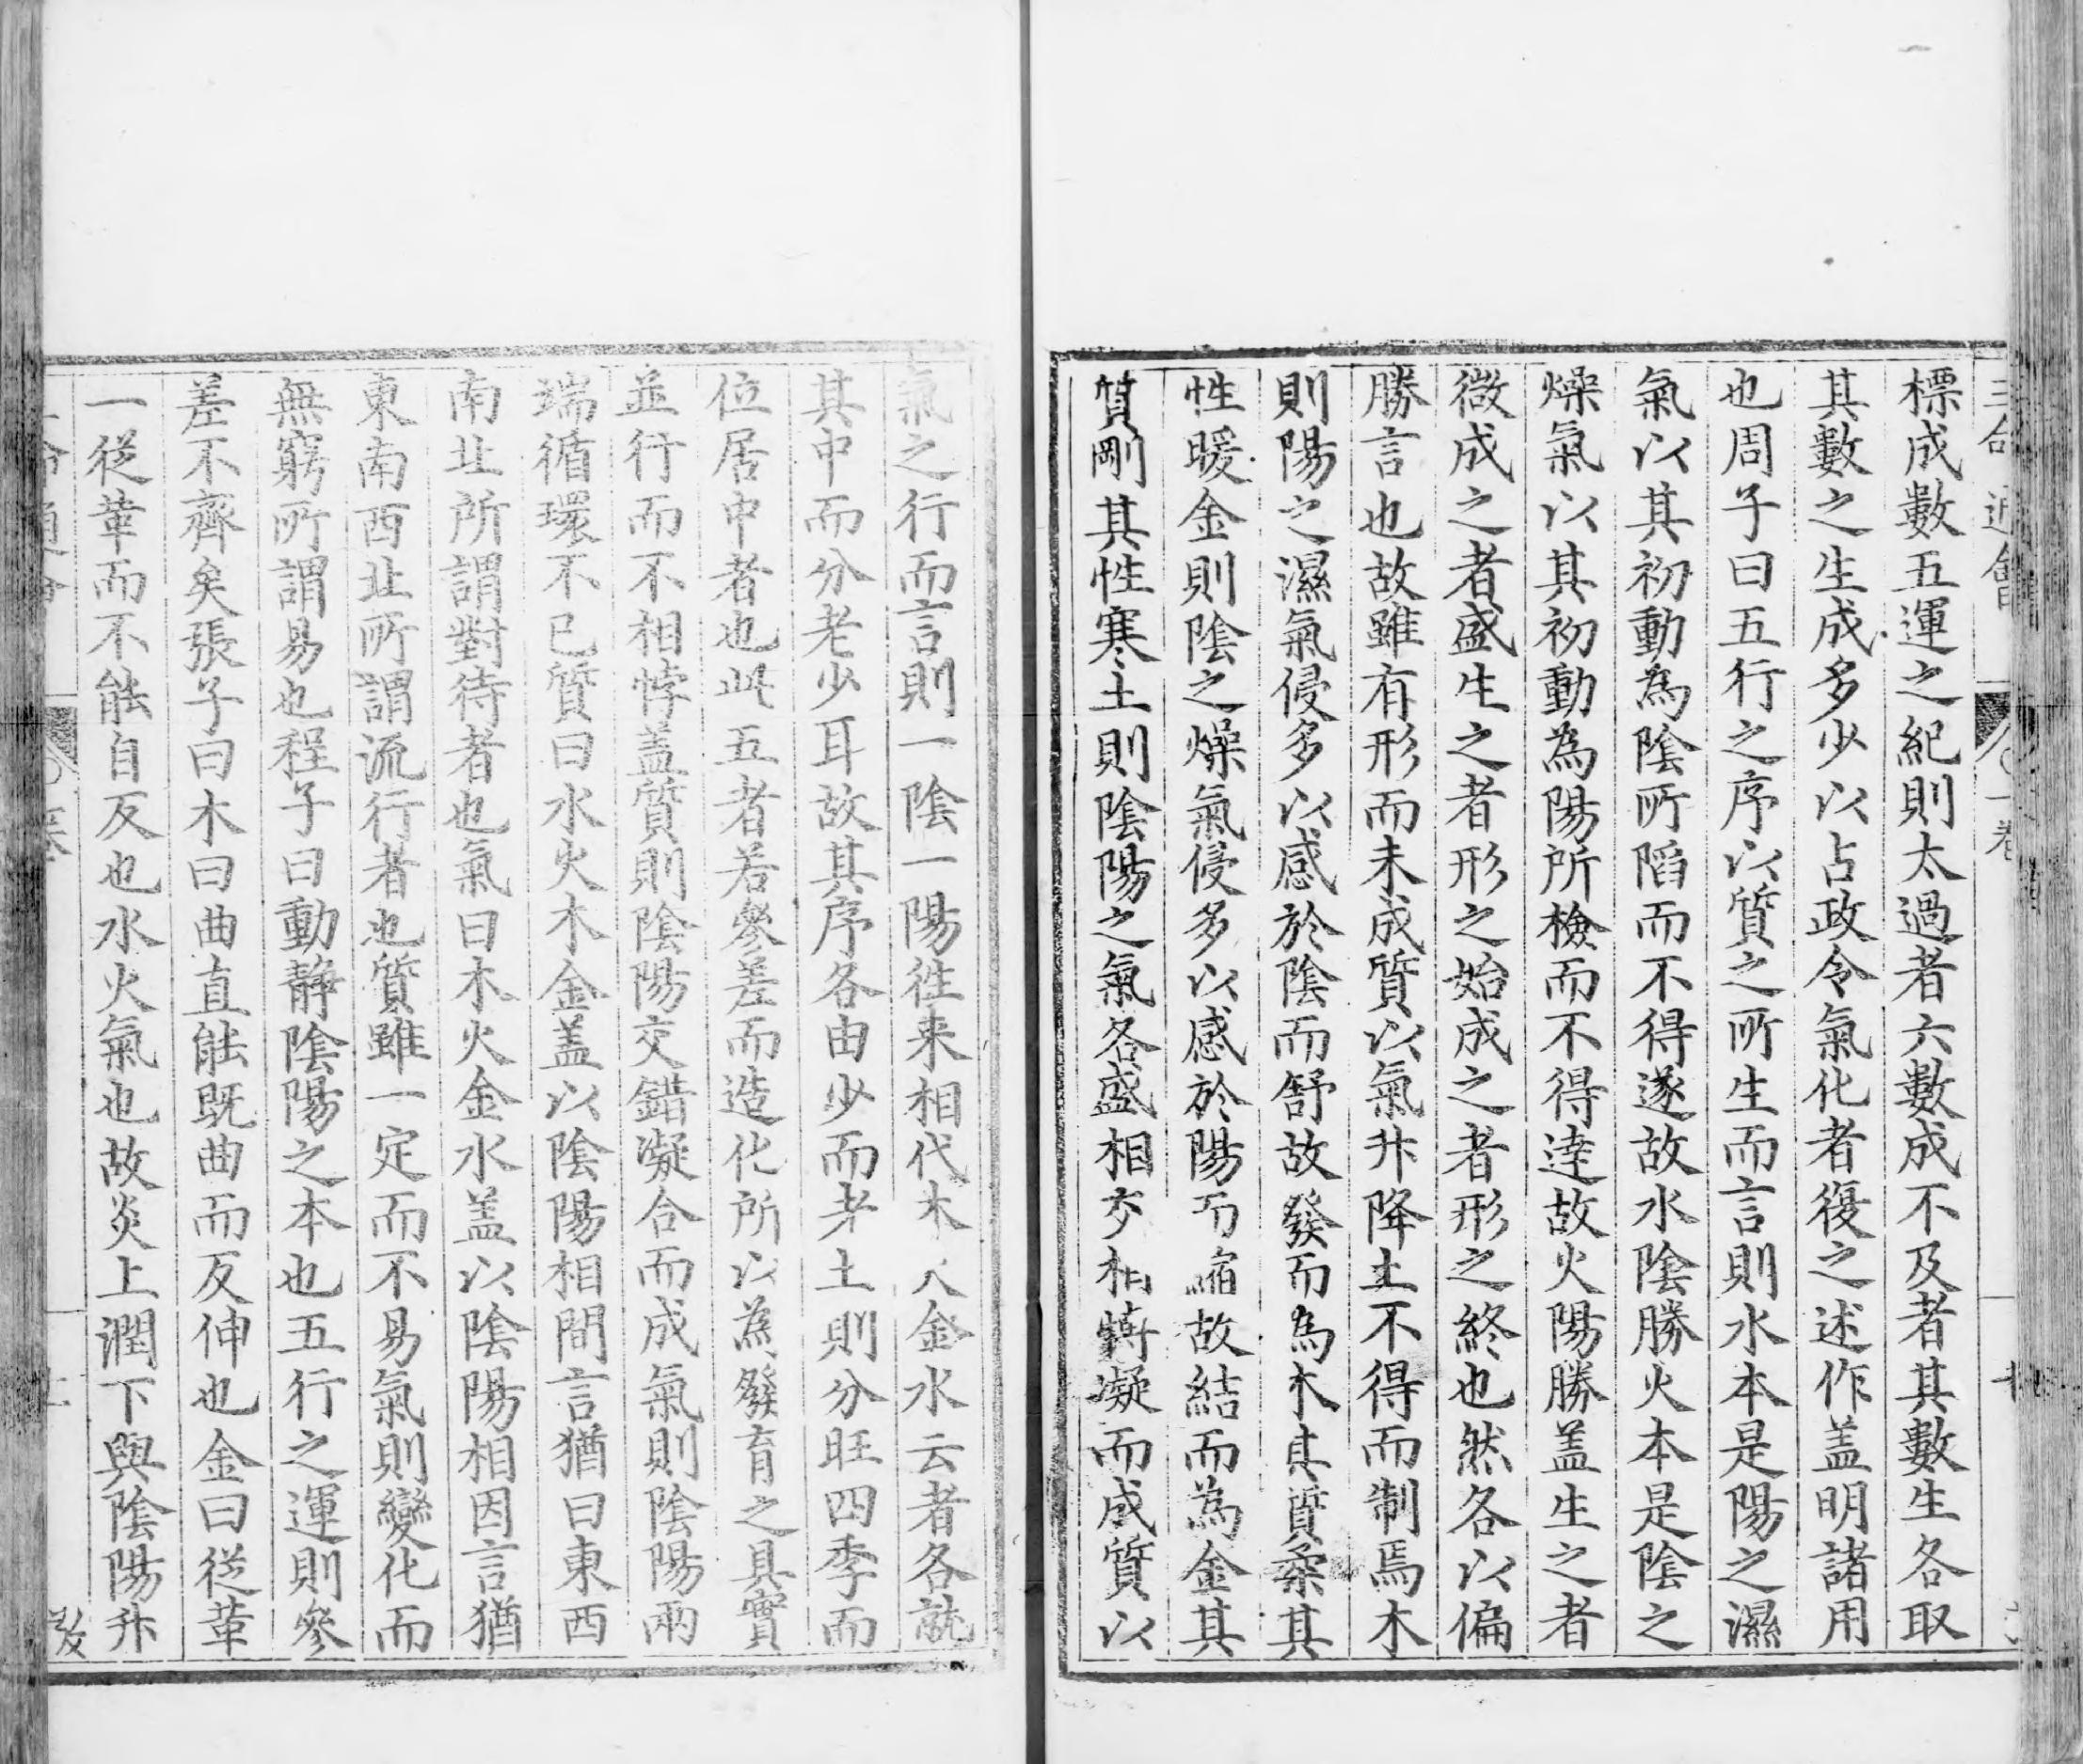 三命通會
一卷
標成數五運之紀則太過者六數成不及者其數生各取
其數之生成多少以占政令氣化者復之述作盖明諸用
也周子曰五行之序以質之所生而言則水本是陽之濕
氣以其初動為陰所陷而不得遂故水陰勝火本是陰之
燥氣以其初動為陽所檢而不得達故火陽勝盖生之者
微成之者盛生之者形之始成之者形之終也然各以偏
勝言也故雖有形而未成質以氣升降土不得而制焉木
則陽之濕氣侵多以感於陰而舒故發而為木其質柔其
性暖金則陰之燥氣侵多以感於陽而縮故結而為金其
質剛其性寒土則陰陽之氣各盛相交相摶凝而成質以
氣之行而言則一陰一陽徃来相代木火金水云者各就
其中而分老少耳故其序各由少而老土則分旺四季而
位居中者也此五者若參差而造化所以為發育之具實
並行而不相悖盖質則陰陽交錯凝合而成氣則陰陽兩
端循環不已質曰水火木金盖以陰陽相間言猶曰東西
南北所謂對待者也氣曰木火金水盖以陰陽相因言猶
東南西北所謂流行者也質雖一定而不易氣則變化而
無窮所謂易也程子曰動靜陰陽之本也五行之運則參
差不齊矣張子曰木曰曲直能既曲而反伸也金曰從革
一從革而不能自反也水火氣也故炎上潤下與陰陽升